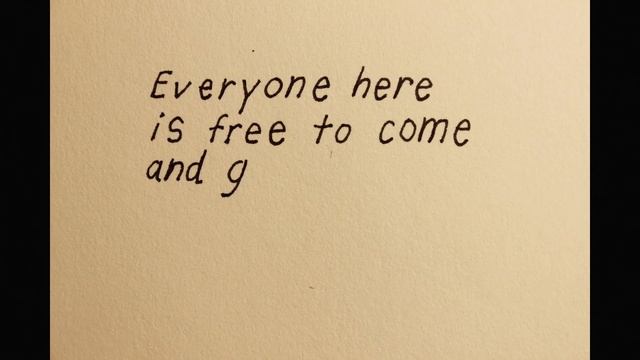 Everyone here
is free to come
and g